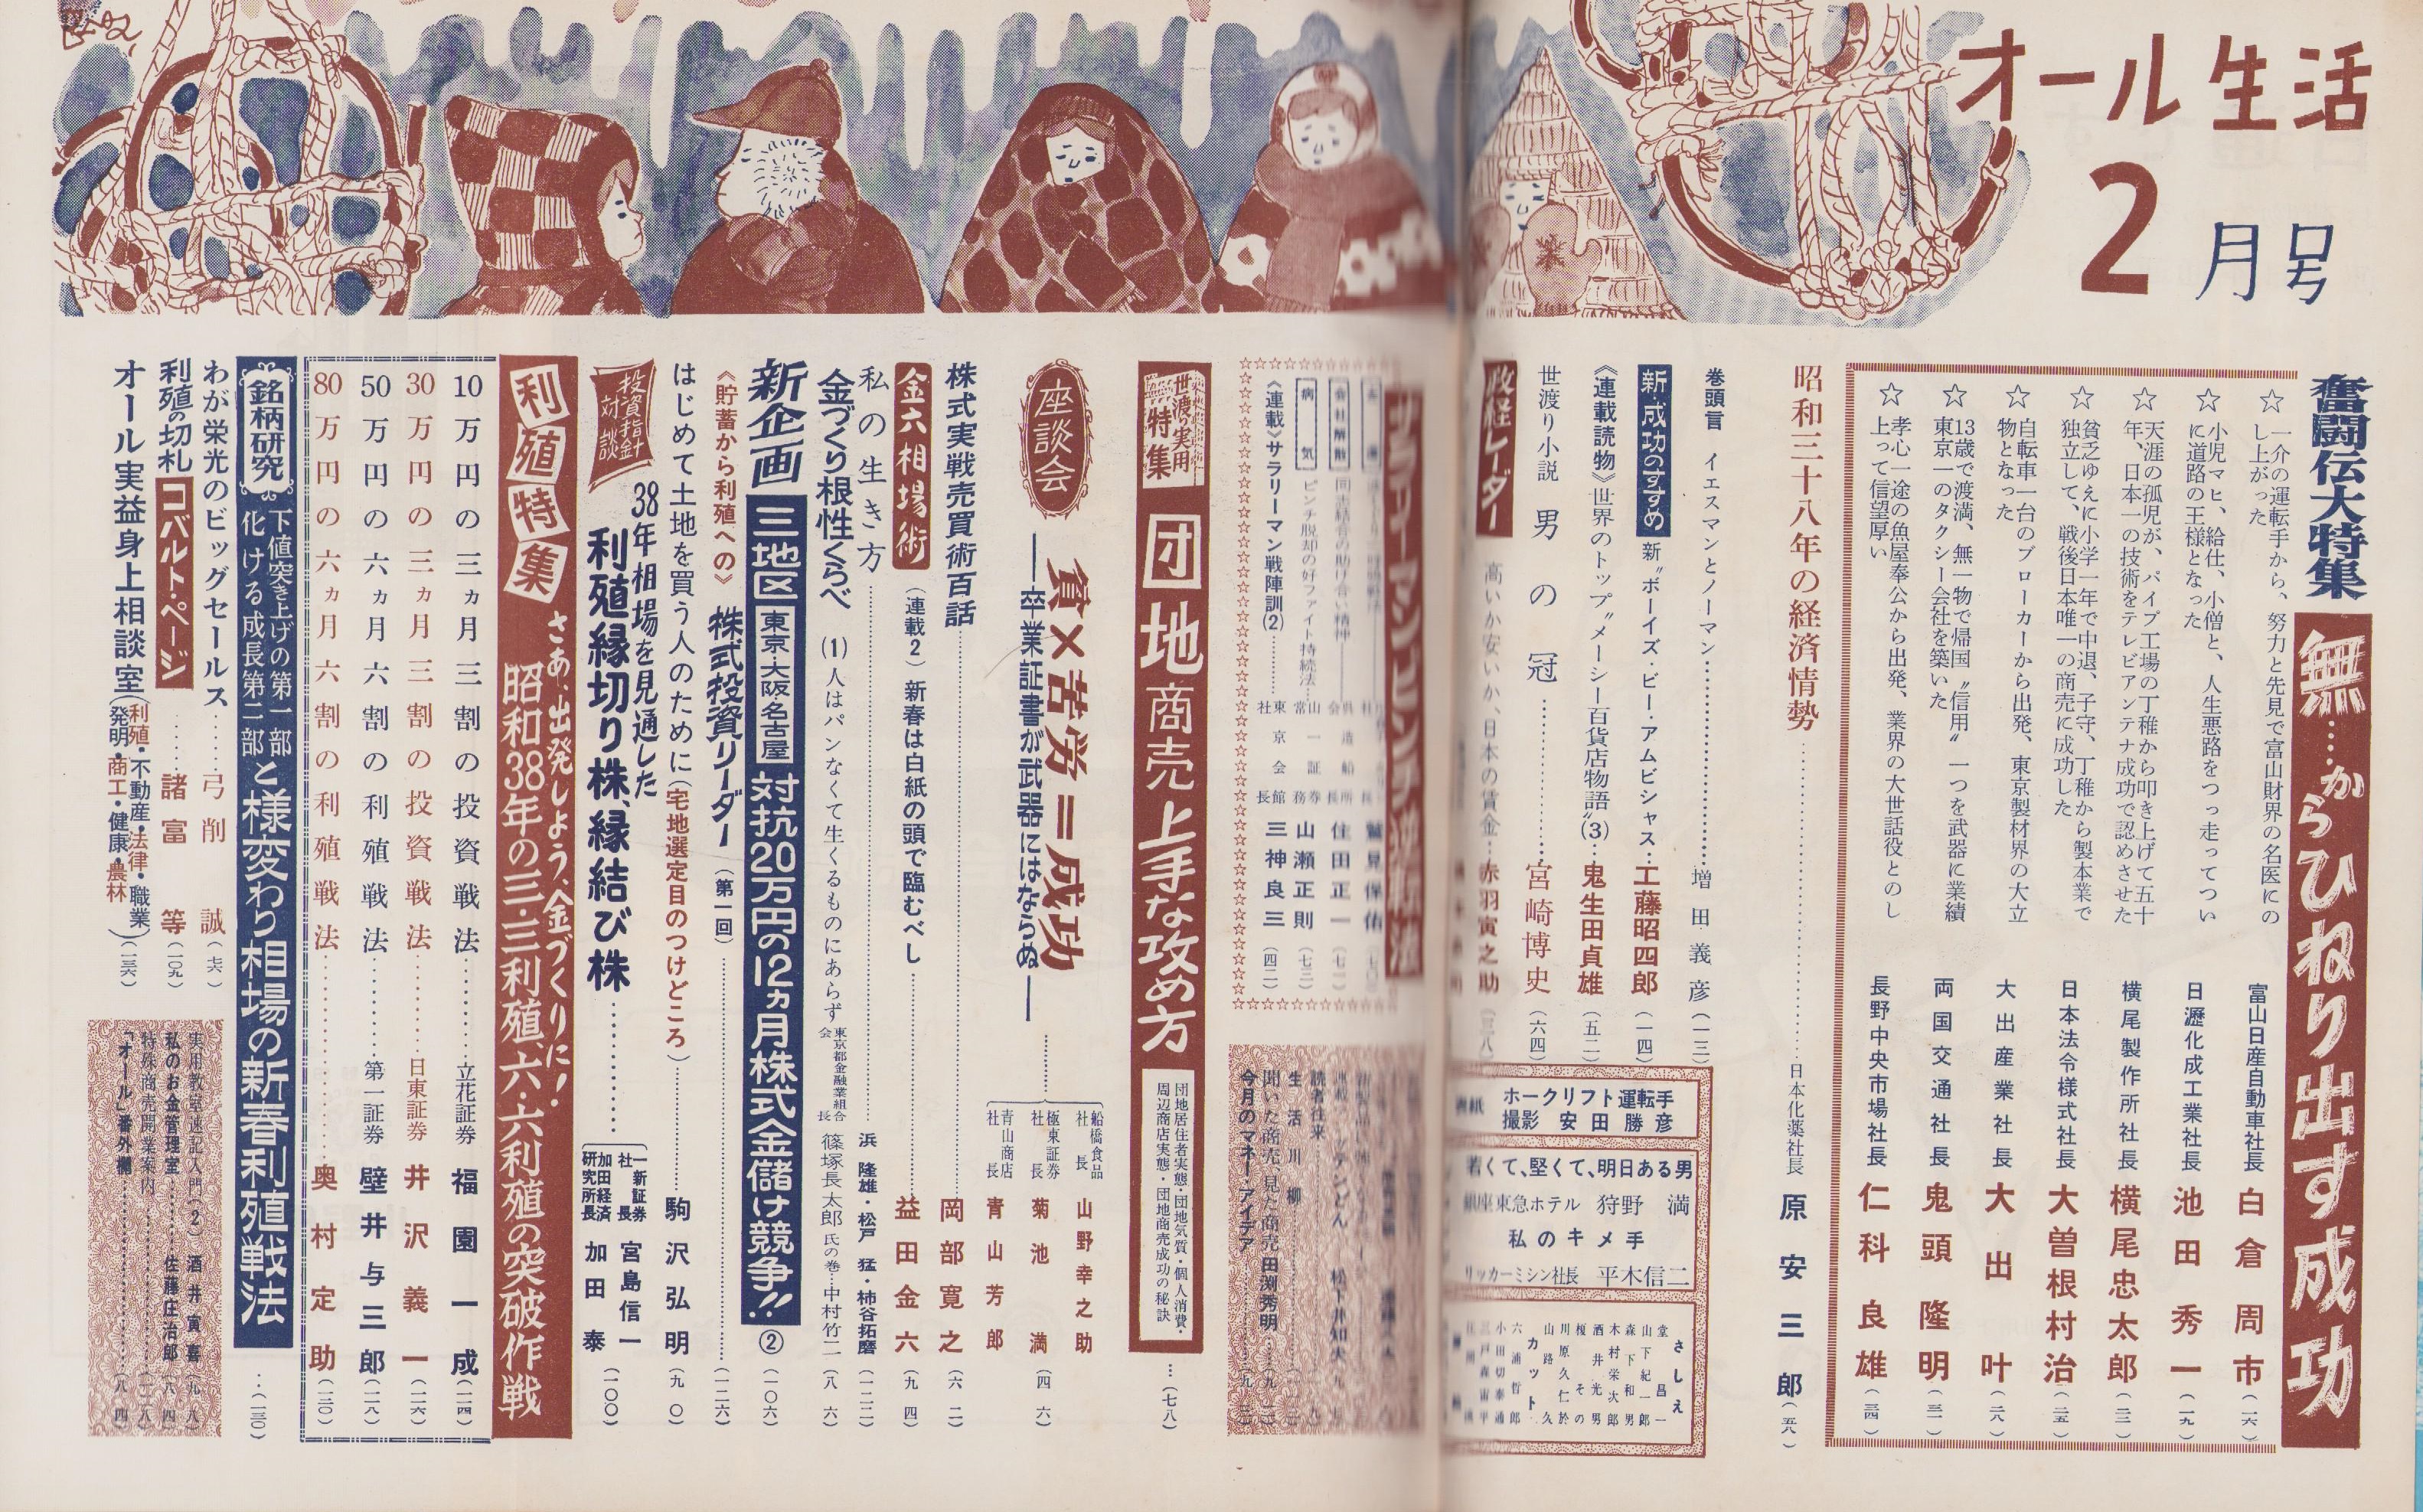 オール生活
2月号
奮闘伝大特集
無……からひねり出す成功
☆一介の運転手から、努力と先見で富山財界の名医にの
し上がった
富山日産自動車社長 白倉周市(一六)
☆小児マヒ、給仕、小僧と、人生悪路をつっ走ってつい
に道路の王様となった
日瀝化成工業社長 池田秀一(一九)
☆天涯の孤児が、パイプ工場の丁稚から叩き上げて五十
年、日本一の技術をテレビアンテナ成功で認めさせた
横尾製作所社長 横尾忠太郎(二二)
☆貧乏ゆえに小学一年で中退、子守、丁稚から製本業で
独立して、戦後日本唯一の商売に成功した
日本法令様式社長 大曽根村治(二五)
☆自転車一台のブローカーから出発、東京製材界の大立
物となった
大出産業社長 大出叶(二八)
☆13歳で渡満、無一物で帰国〝信用〟一つを武器に業績
東京一のタクシー会社を築いた
両国交通社長 鬼頭隆明(三一)
☆孝心一途の魚屋奉公から出発、業界の大世話役とのし
上って信望厚い
長野中央市場社長 仁科良雄(三四)
昭和三十八年の経済情勢……日本化薬社長 原安三郎(五八)
巻頭言 イエスマンとノーマン……増田義彦(一三)
新・成功のすすめ 新〝ボーイズ・ビー・アムビシャス…工藤昭四郎(一四)
《連載読物》世界のトップ〝メーシー百貨店物語〟(3)…鬼生田貞雄(五二)
世渡り小説 男の冠……宮崎博史(六四)
政経レーダー 高いか安いか、日本の賃金…赤羽寅之助(三八)
表紙 ホークリフト運転手
撮影 安田勝彦
若くて、堅くて、明日ある男
銀座東急ホテル 狩野満
私のキメ手
リッカーミシン社長 平木信二
さしえ
堂昌一
山下紀一郎
森下和男
木村栄次郎
酒井光男
榎その
川原久仁於
山路久
カット
六浦哲郎
小田切泰浦
三戸森宙平
サラリーマンピンチ
鷲見保佑
会社解散 同志結合の助け合い精神……呉造船所会長 住田正一(七一)
病気 ピンチ脱却の好ファイト持続法……山一証券常務 山瀬正則(七三)
《連載》サラリーマン戦陣訓(2)……東京会館社長 三神良三(四二)
読者往来
生活川柳
聞いた商売・見た商売 田渕秀明
今月のマネー・アイデア
世渡の実用特集
団地商売 上手な攻め方
団地居住者実態・団地気質・個人消費・
周辺商店実態・団地商売成功の秘訣
…(七八)
座談会 貧×苦労=成功
――卒業証書が武器にはならぬ――
船橋食品社長 山野幸之助
極東証券社長 菊池満(四六)
青山商店社長 青山芳郎
株式実戦売買術百話……岡部寛之(六二)
金六相場術(連載2)新春は白紙の頭で臨むべし……益田金六(九四)
私の生き方……浜隆雄・松戸猛・柿谷拓磨(一二二)
金づくり根性くらべ(1)人はパンなくて生くるものにあらず 東京都金融業組合会長 篠塚長太郎氏の巻…中村竹二(八六)
新企画 三地区 東京・大阪・名古屋 対抗20万円の12ヵ月株式金儲け競争!!②(一〇六)
《貯蓄から利殖への》株式投資リーダー(第一回)……(一二六)
はじめて土地を買う人のために(宅地選定目のつけどころ)……駒沢弘明(九〇)
投資指針対談
38年相場を見通した
利殖縁切り株、縁結び株……
一新証券社長 宮島信一
加田経済研究所長 加田泰
(一〇〇)
利殖特集
さあ、出発しよう、金づくりに!
昭和38年の三・三利殖、六・六利殖の突破作戦
10万円の三ヵ月三割の投資戦法……立花証券 福園一成(一二四)
30万円の三ヵ月三割の投資戦法……日東証券 井沢義一(一二六)
50万円の六ヵ月六割の利殖戦法……第一証券 壁井与三郎(一二八)
80万円の六ヵ月六割の利殖戦法……奥村定助(一三〇)
銘柄研究
下値突き上げの第一部
化ける成長第二部
と様変わり相場の新春利殖戦法
…(一三〇)
わが栄光のビッグセールス……弓削誠(七六)
利殖の切札 コバルト・ページ……諸富等(一〇九)
オール実益身上相談室(利殖・不動産・法律・職業
発明・商工・健康・農林)(一三六)
実用教室速記入門(2) 酒井寅喜(九八)
私のお金管理室……佐藤庄治郎(八四)
特殊商売開業案内……(一三八)
「オール」番外欄……(八四)